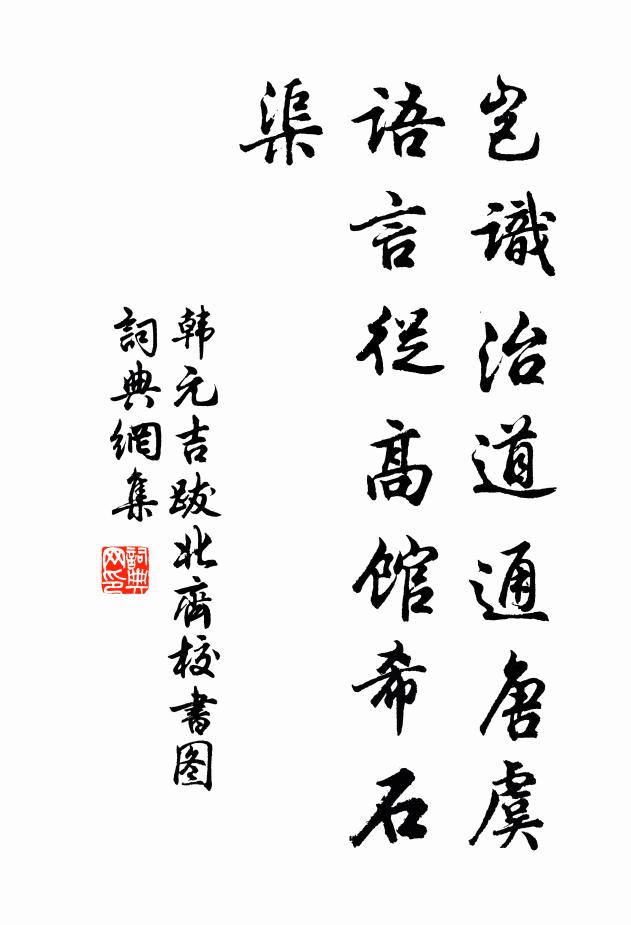 岂識治道通唐虞
語言從高館希石
渠
韩元吉跋北齊校書图
詞典網集
詞典网印